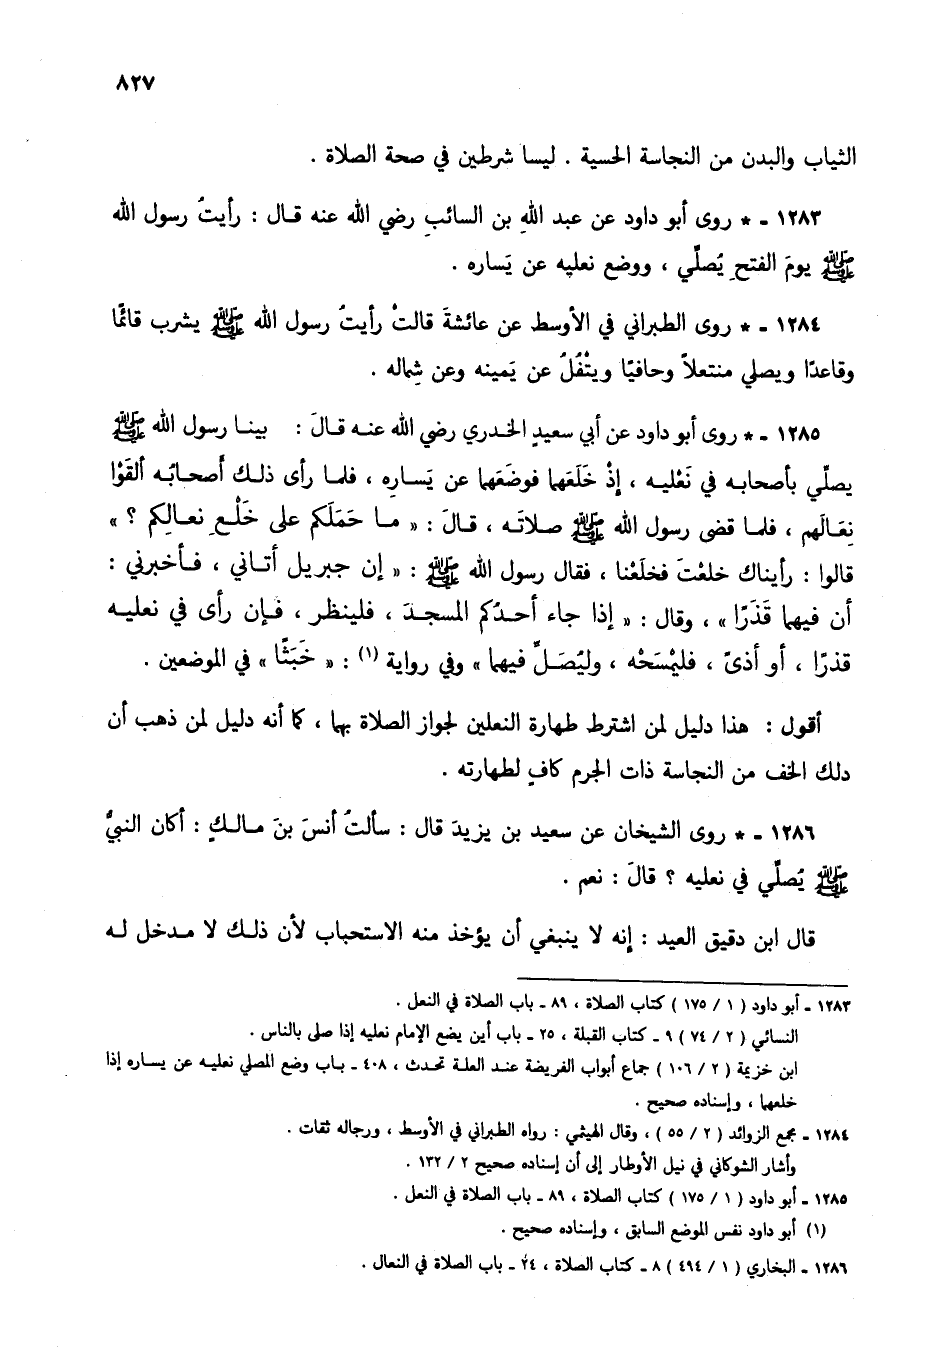 ٨٢٧
الثياب والبدن من النجاسة الحسية . ليسا شرطين في صحة الصلاة .
١٢٨٣ - * روى أبو داود عن عبد اللهِ بن السائبِ رضي الله عنه قال : رأيتُ رسول الله
ﷺ يومَ الفتحِ يُصلِّي ، ووضع نعليه عن يَساره .
١٢٨٤ - * روى الطبراني في الأوسط عن عائشةَ قالتْ رأيتُ رسول الله ﷺ يشرب قائمًا
وقاعدًا ويصلي منتعلاً وحافيًا ويتْفُلُ عن يَمينه وعن شِماله .
١٢٨٥ - * روى أبو داود عن أبي سعيدٍ الخدري رضي الله عنه قالَ : بينا رسول الله ﷺ
يصلّي بأصحابه في نَعْليه ، إذْ خَلَعَهما فوضَعَهما عن يَسارِه ، فلما رأى ذلك أصحابُه ألقَوْا
نِعَالَهم ، فلما قضى رسول الله ﷺ صلاتَه ، قالَ : « ما حَمَلَكم على خَلْعِ نعالِكم ؟ »
قالوا : رأيناك خلعْتَ فخلَعْنا ، فقال رسول الله ﷺ : « إن جبريل أتاني ، فأخبرني :
أن فيهما قَذَرًا » ، وقال : « إذا جاء أحدُكم المسجدَ ، فلينظر ، فإن رأى في نعليه
قذرًا ، أو أذىً ، فليمْسَحْه ، وليُصَلِّ فيهما » وفي رواية (١) : « خَبَثًا » في الموضعين .
أقول : هذا دليل لمن اشترط طهارة النعلين لجواز الصلاة بهما ، كما أنه دليل لمن ذهب أن
دلك الخف من النجاسة ذات الجرم كافٍ لطهارته .
١٢٨٦ - * روى الشيخان عن سعيد بن يزيدَ قال : سألتُ أنسَ بنَ مالكٍ : أكان النبيُّ
ﷺ يُصلِّي في نعليه ؟ قالَ : نعم .
قال ابن دقيق العيد : إنه لا ينبغي أن يؤخذ منه الاستحباب لأن ذلك لا مدخل له
١٢٨٣ - أبو داود ( ١ / ١٧٥ ) كتاب الصلاة ، ٨٩ - باب الصلاة في النعل .
النسائي ( ٢ / ٧٤ ) ٩ - كتاب القبلة ، ٢٥ - باب أين يضع الإمام نعليه إذا صلى بالناس .
ابن خزيمة ( ٢ / ١٠٦ ) جماع أبواب الفريضة عند العلة تحدث ، ٤٠٨ - باب وضع المصلي نعليه عن يساره إذا
خلعهما ، وإسناده صحيح .
١٢٨٤ - مجمع الزوائد ( ٢ / ٥٥ ) ، وقال الهيثمي : رواه الطبراني في الأوسط ، ورجاله ثقات .
وأشار الشوكاني في نيل الأوطار إلى أن إسناده صحيح ٢ / ١٣٢ .
١٢٨٥ - أبو داود ( ١ / ١٧٥ ) كتاب الصلاة ، ٨٩ - باب الصلاة في النعل .
(١) أبو داود نفس الموضع السابق ، وإسناده صحيح .
١٢٨٦ - البخاري ( ١ / ٤٩٤ ) ٨ - كتاب الصلاة ، ٢٤ - باب الصلاة في النعال .